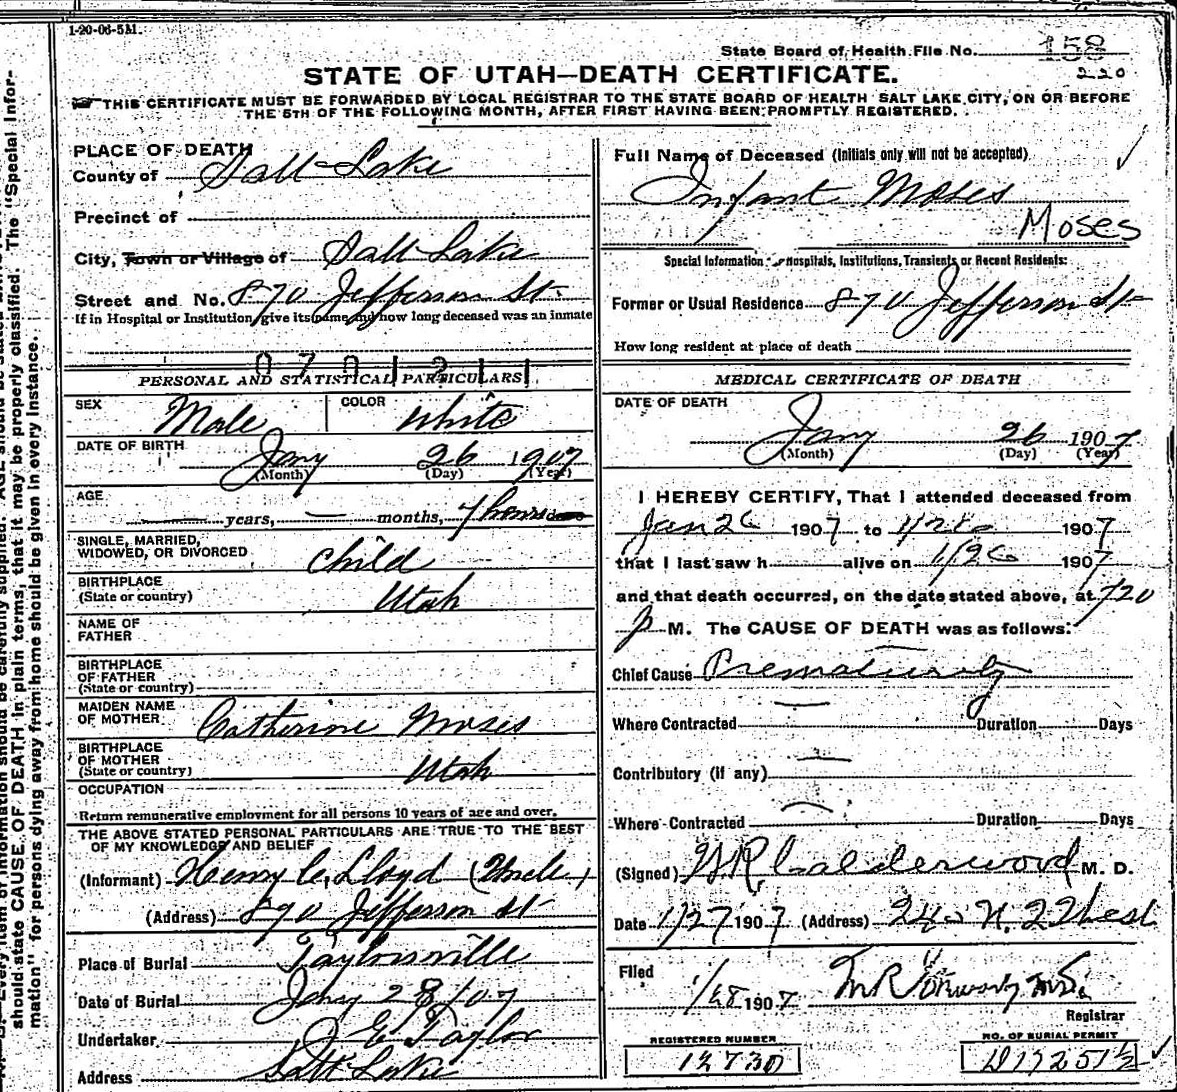 1-20-06-5M.
State Board of Health File No. 158
220
STATE OF UTAH—DEATH CERTIFICATE.
THIS CERTIFICATE MUST BE FORWARDED BY LOCAL REGISTRAR TO THE STATE BOARD OF HEALTH SALT LAKE CITY, ON OR BEFORE
THE 5TH OF THE FOLLOWING MONTH, AFTER FIRST HAVING BEEN PROMPTLY REGISTERED.
PLACE OF DEATH
County of Salt Lake
Precinct of
City, Town or Village of Salt Lake
Street and No. 870 Jefferson St
If in Hospital or Institution, give its name and how long deceased was an inmate
Full Name of Deceased (Initials only will not be accepted)
Infant Moses
Moses
Special Information Hospitals, Institutions, Transients or Recent Residents:
Former or Usual Residence 870 Jefferson St
How long resident at place of death
PERSONAL AND STATISTICAL PARTICULARS
SEX Male COLOR White
DATE OF BIRTH Jany 26 1907
(Month) (Day) (Year)
AGE
years, months, 7 hours
SINGLE, MARRIED,
WIDOWED, OR DIVORCED child
BIRTHPLACE
(State or country) Utah
NAME OF
FATHER
BIRTHPLACE
OF FATHER
(State or country)
MAIDEN NAME
OF MOTHER Catherine Moses
BIRTHPLACE
OF MOTHER
(State or country) Utah
OCCUPATION
Return remunerative employment for all persons 10 years of age and over.
THE ABOVE STATED PERSONAL PARTICULARS ARE TRUE TO THE BEST
OF MY KNOWLEDGE AND BELIEF
(Informant) Henry C. Lloyd (Uncle)
(Address) 870 Jefferson St
Place of Burial Taylorsville
Date of Burial Jany 28/07
Undertaker J E Taylor
Address Salt Lake
MEDICAL CERTIFICATE OF DEATH
DATE OF DEATH
Jany 26 1907
(Month) (Day) (Year)
I HEREBY CERTIFY, That I attended deceased from
Jan 26 1907 to 1907
that I last saw h alive on 1/26 1907
and that death occurred, on the date stated above, at 720
p M. The CAUSE OF DEATH was as follows:
Chief Cause Prematurity
Where Contracted Duration Days
Contributory (if any)
Where Contracted Duration Days
(Signed) W R Calderwood M. D.
Date 1/27 1907 (Address) 240 N. 2 West
Filed
1/28 1907
Registrar
REGISTERED NUMBER
12730
NO. OF BURIAL PERMIT
D17251½
should state CAUSE OF DEATH in plain terms, that it may be properly classified. The "Special Infor-
mation" for persons dying away from home should be given in every instance.